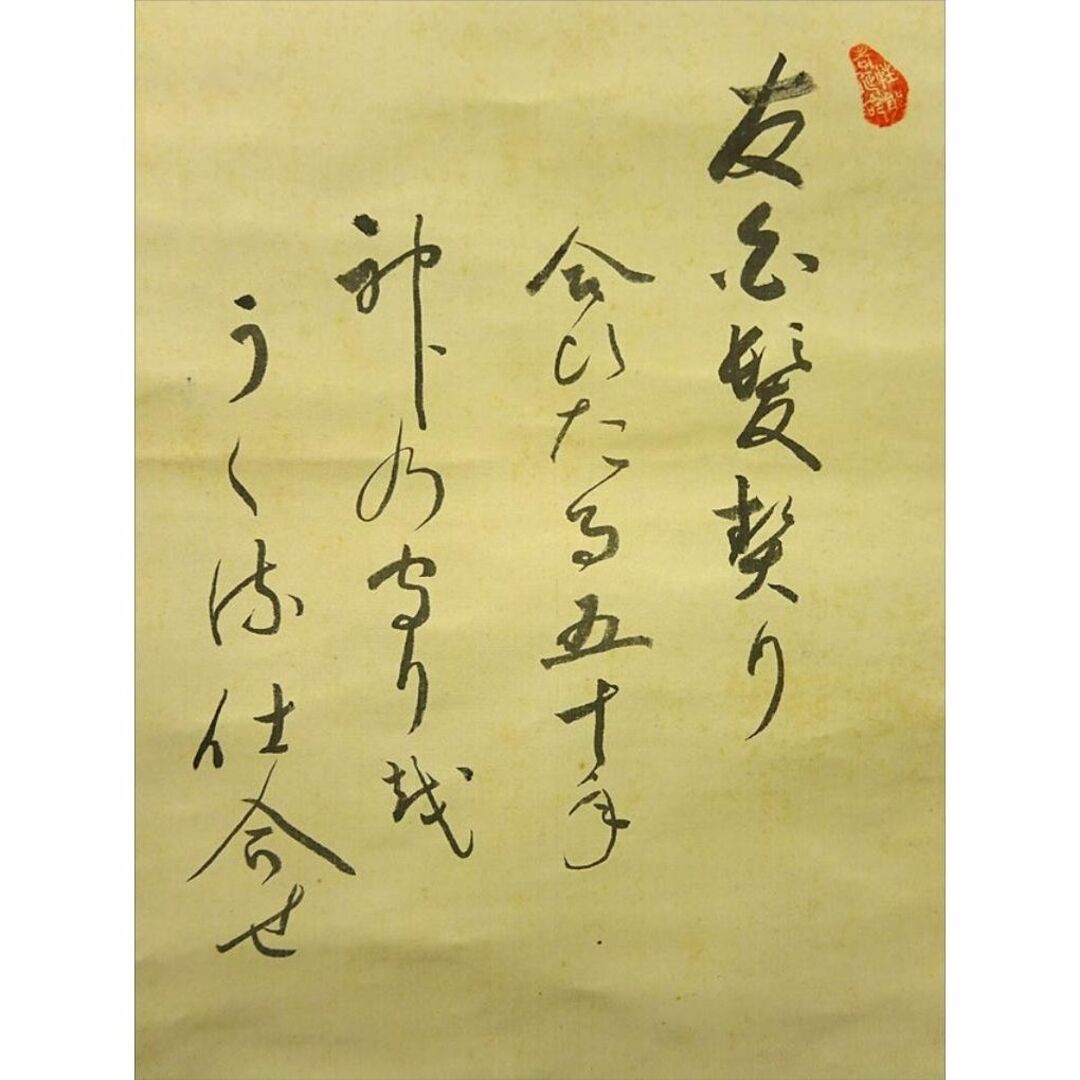 友白髪契り
合ひたる五十年
神の守りを
うくる仕合せ